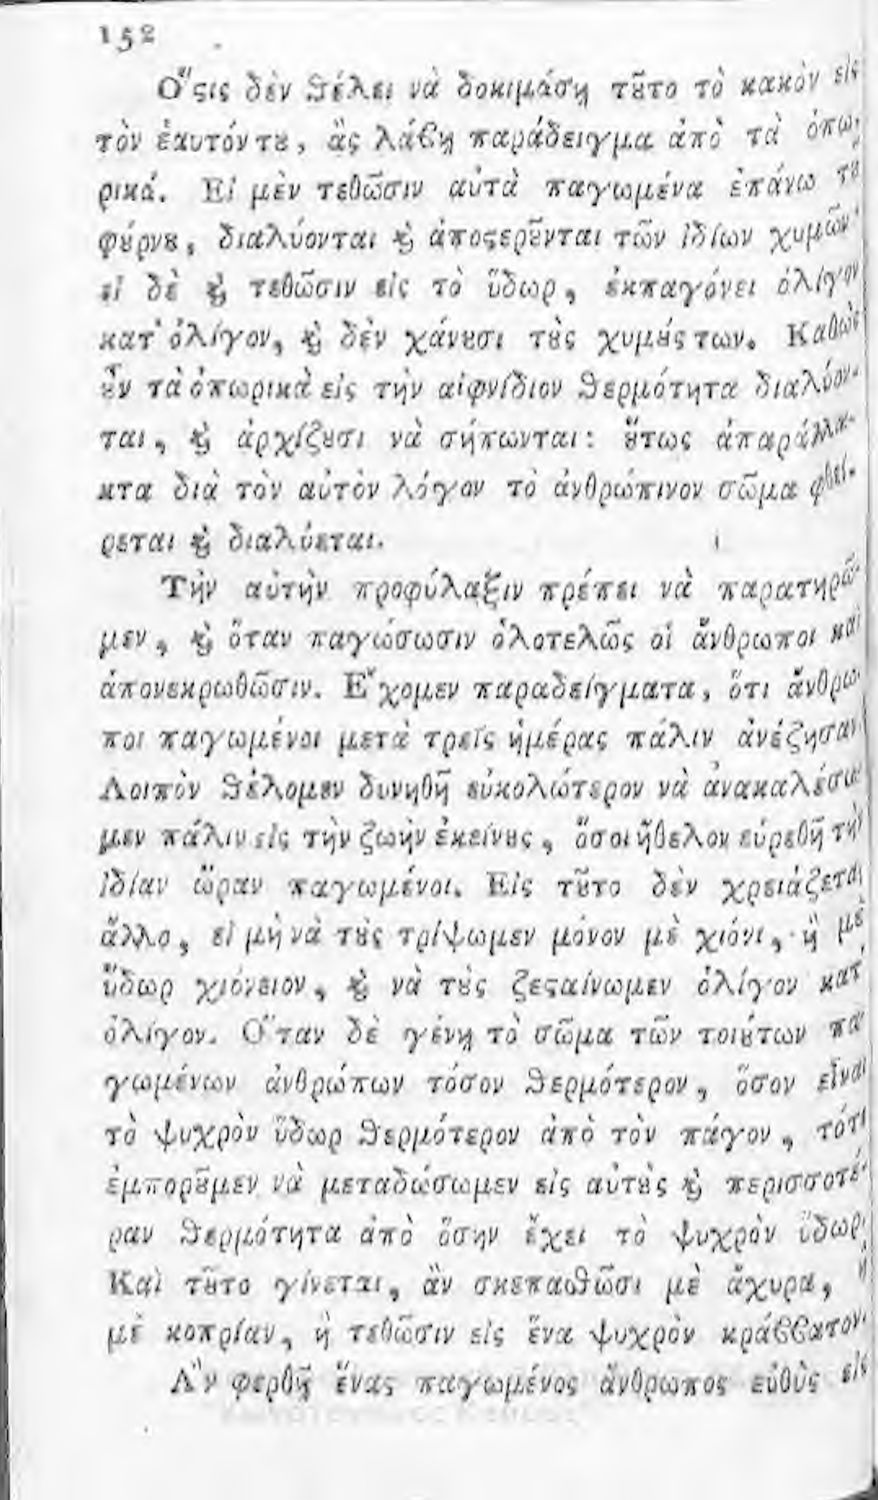 152
Ὅϛις δὲν θέλει νὰ δοκιμάσῃ τȣ͂το τὸ κακὸν εἰς
τὸν ἑαυτόν τȣ, ἂς λάβῃ παράδειγμα ἀπὸ τὰ ὀπω-
ρικά. Εἰ μὲν τεθῶσιν αὐτὰ παγωμένα ἐπάνω τȣ
φȣ́ρνȣ, διαλύονται ϗ ἀποϛερȣ͂νται τῶν ἰδίων χυμῶν·
εἰ δὲ ϗ τεθῶσιν εἰς τὸ ὕδωρ, ἐκπαγόνει ὀλίγον
κατ' ὀλίγον, ϗ δὲν χάνȣσι τȣ̀ς χυμȣ́ς των. Καθὼς
ȣ̓͂ν τὰ ὀπωρικὰ εἰς τὴν αἰφνίδιον θερμότητα διαλύον-
ται, ϗ ἀρχίζȣσι νὰ σήπωνται: ȣ̔́τως ἀπαράλλα-
κτα διὰ τὸν αὐτὸν λόγον τὸ ἀνθρώπινον σῶμα φθεί-
ρεται ϗ διαλύεται.
Τὴν αὐτὴν προφύλαξιν πρέπει νὰ παρατηρῶ-
μεν, ϗ ὅταν παγώσωσιν ὁλοτελῶς οἱ ἄνθρωποι καὶ
ἀπονεκρωθῶσιν. Ἔχομεν παραδείγματα, ὅτι ἄνθρω-
ποι παγωμένοι μετὰ τρεῖς ἡμέρας πάλιν ἀνέζησαν
Λοιπὸν θέλομεν δυνηθῆ εὐκολώτερον νὰ ἀνακαλέσω-
μεν πάλιν εἰς τὴν ζωὴν ἐκείνȣς, ὅσοι ἤθελον εὑρεθῆ τὴν
ἰδίαν ὥραν παγωμένοι. Εἰς τȣ͂το δὲν χρειάζεται
ἄλλο, εἰ μὴ νὰ τȣ̀ς τρίψωμεν μόνον μὲ χιόνι, ἢ μὲ
ὕδωρ χιόνειον, ϗ νὰ τȣ̀ς ζεϛαίνωμεν ὀλίγον κατ'
ὀλίγον. Ὅταν δὲ γένῃ τὸ σῶμα τῶν τοιȣ́των πα-
γωμένων ἀνθρώπων τόσον θερμότερον, ὅσον εἶναι
τὸ ψυχρὸν ὕδωρ θερμότερον ἀπὸ τὸν πάγον, τότε
ἐμπορȣ͂μεν νὰ μεταδώσωμεν εἰς αὐτȣ̀ς ϗ περισσοτέ-
ραν θερμότητα ἀπὸ ὅσην ἔχει τὸ ψυχρὸν ὕδωρ.
Καὶ τȣ͂το γίνεται, ἂν σκεπασθῶσι μὲ ἄχυρα, ἢ
μὲ κοπρίαν, ἢ τεθῶσιν εἰς ἕνα ψυχρὸν κράββατον.
Ἂν φερθῇ ἕνας παγωμένος ἄνθρωπος εὐθὺς εἰς